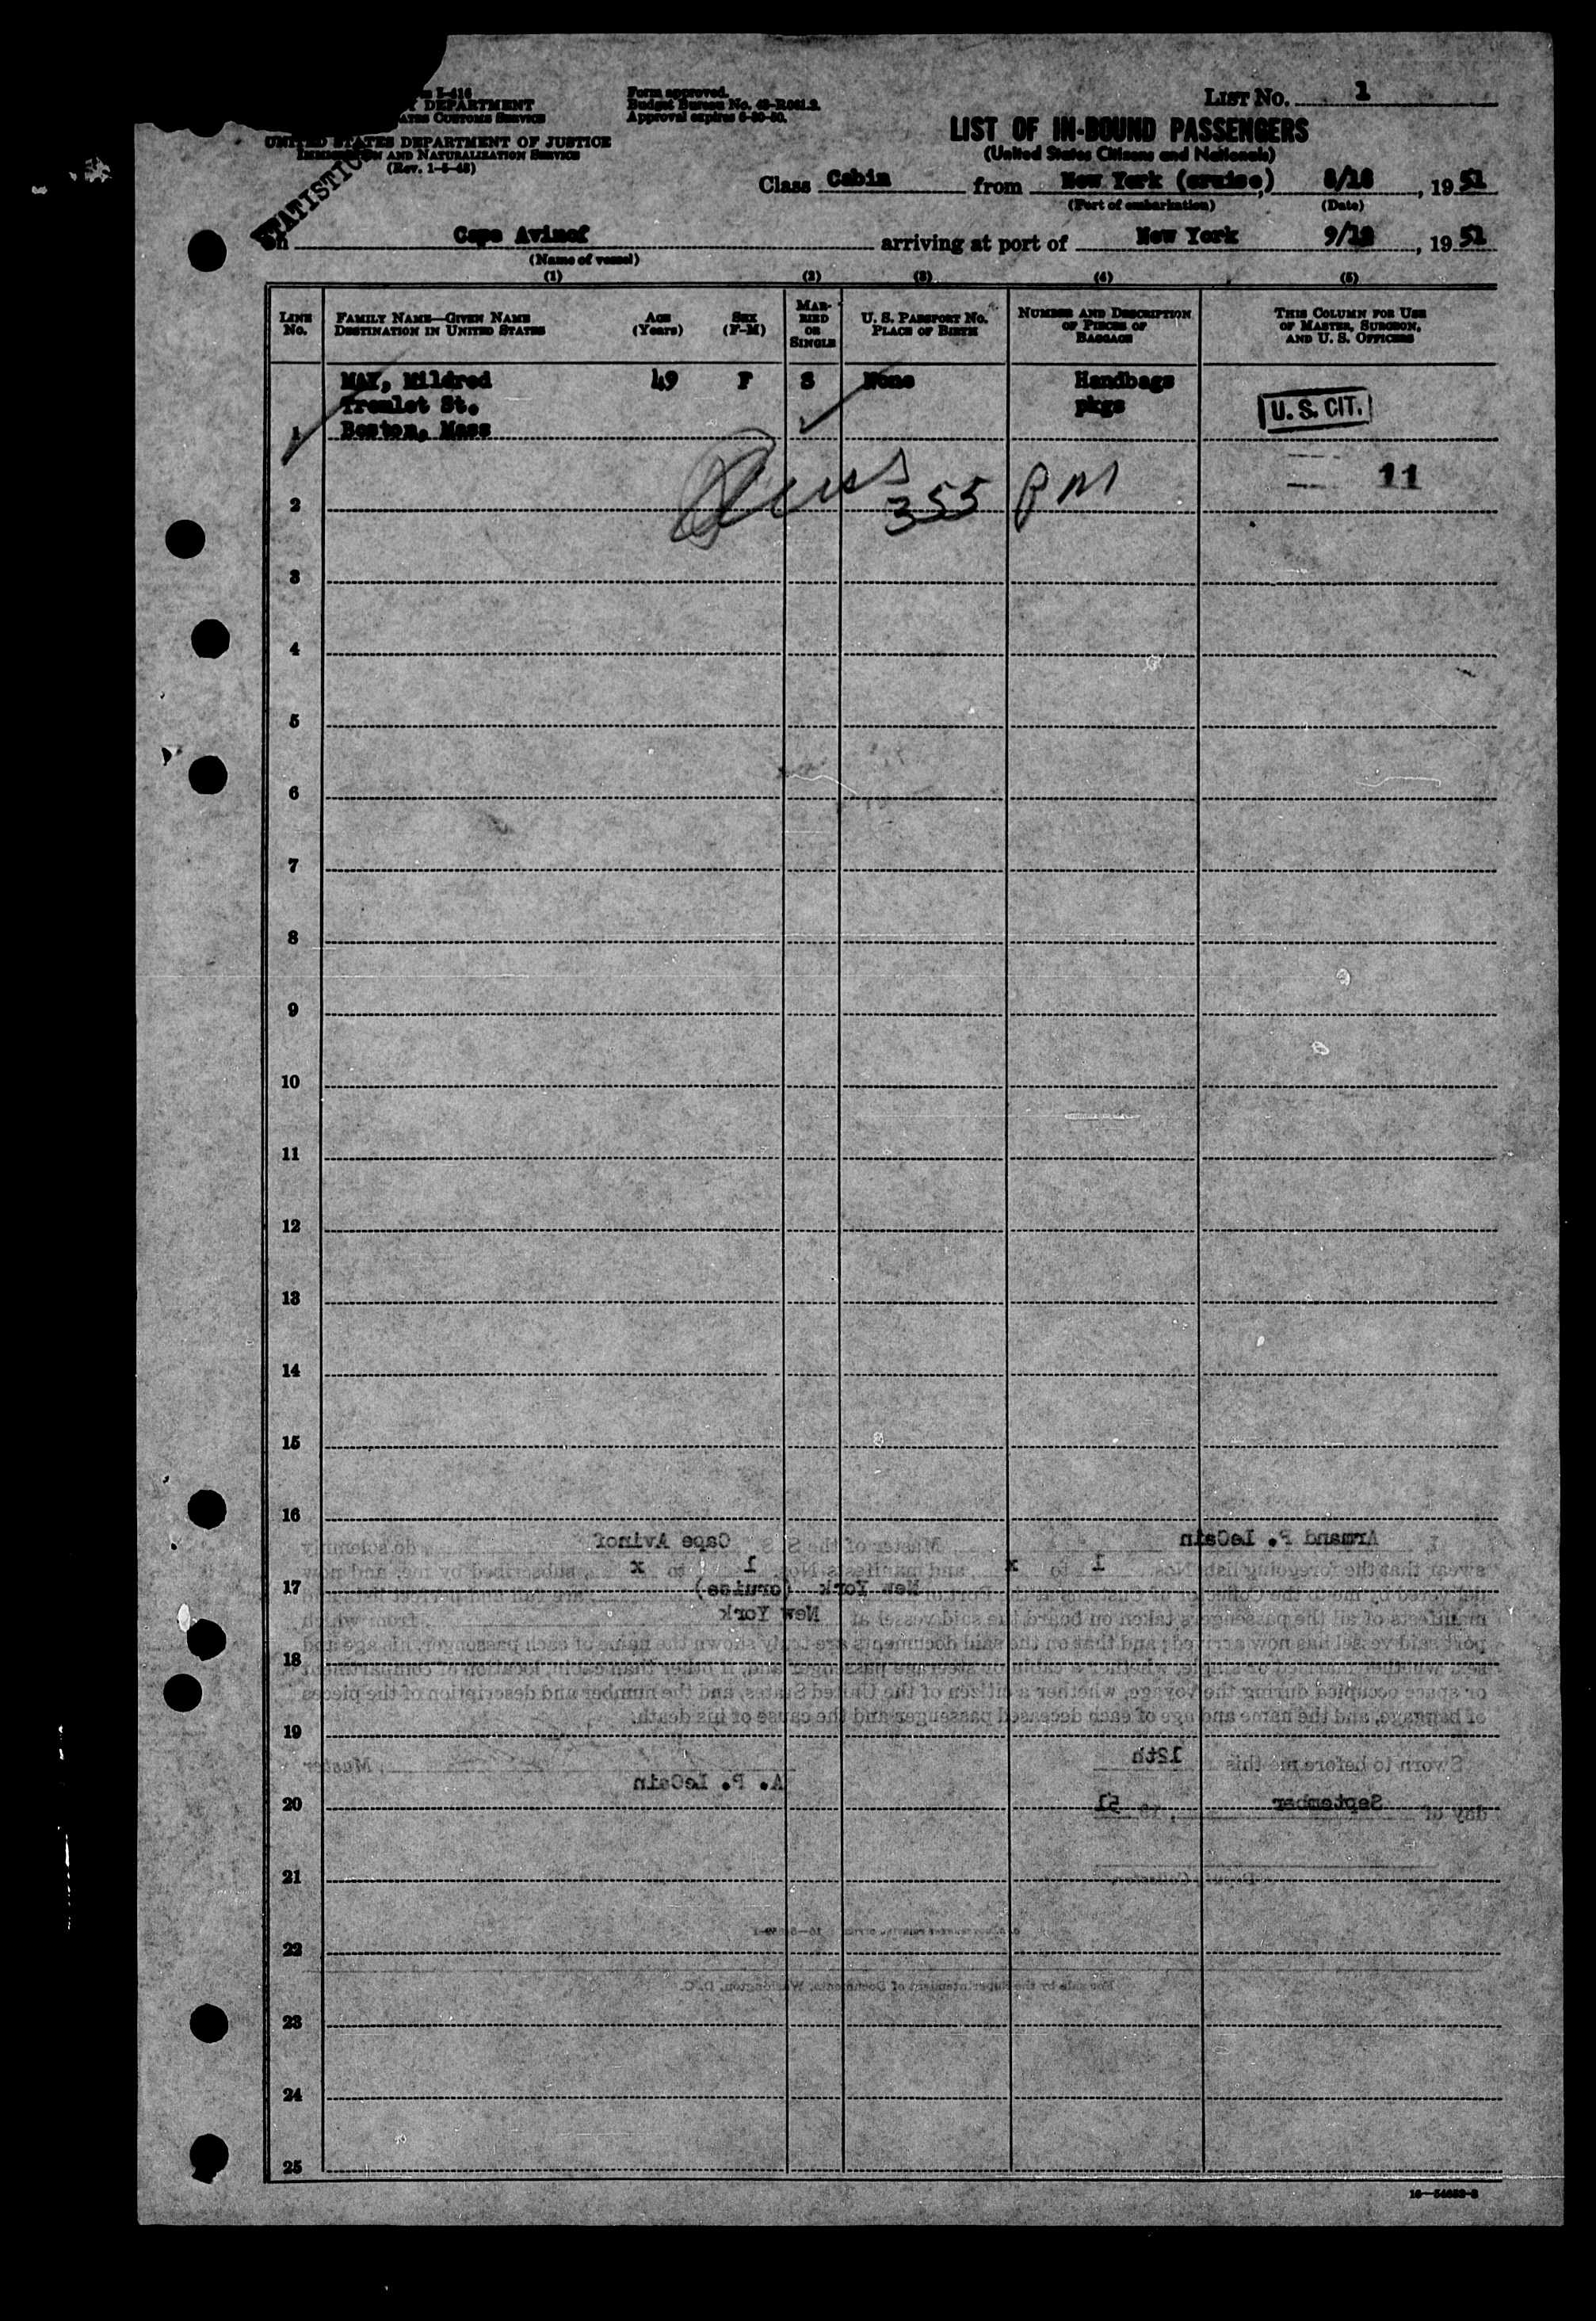 I-416
DEPARTMENT
CUSTOMS SERVICE
UNITED STATES DEPARTMENT OF JUSTICE
IMMIGRATION AND NATURALIZATION SERVICE
(Rev. 1-5-48)
STATISTICS
Form approved.
Budget Bureau No. 43-R061.2.
Approval expires 6-30-50.
LIST No. 1
LIST OF IN-BOUND PASSENGERS
(United States Citizens and Nationals)
Class Cabin from New York (cruise), 8/18, 1951
(Port of embarkation) (Date)
on Cape Avinof arriving at port of New York 9/12, 1951
(Name of vessel)
(1) (2) (3) (4) (5)
LINE No.
FAMILY NAME—GIVEN NAME
DESTINATION IN UNITED STATES
AGE (Years)
SEX (F-M)
MARRIED OR SINGLE
U. S. PASSPORT NO.
PLACE OF BIRTH
NUMBER AND DESCRIPTION OF PIECES OF BAGGAGE
THIS COLUMN FOR USE OF MASTER, SURGEON, AND U. S. OFFICERS
MAY, Mildred 49 F S None Handbags
Tremlet St. pkgs U. S. CIT.
1 Boston, Mass
11
355 PM
2
3
4
5
6
7
8
9
10
11
12
13
14
15
16
I, Armand P. LeCain, Master of the S S Cape Avinof do solemnly
swear that the foregoing list Nos. 1 to x, and manifests Nos. 1 to x, subscribed by me, and now
New York (cruise)
manifests of all the passengers taken on board the said vessel at New York from which
17
port said vessel has now arrived; and that on the said documents are truly shown the name of each passenger, his age and
18
or space occupied during the voyage, whether a citizen of the United States, and the number and description of the pieces
of baggage, and the name and age of each deceased passenger and the cause of his death.
19
Sworn to before me this 12th , Master
A. P. LeCain
20
day of September, 19 51
21
22
For sale by the Superintendent of Documents, Washington, D. C.
23
24
25